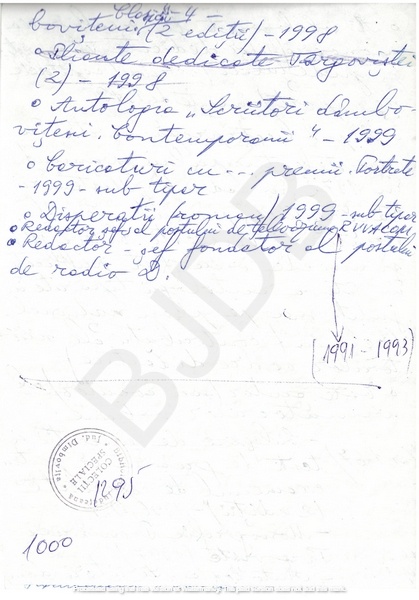 - 4 -
bovițeni (2 ediții) - 1998
o Pliante dedicate Târgoviștei
(2) - 1998
o Antologia „Scriitori dâmbo-
vițeni contemporanii" - 1999
o Caricaturi cu ... premii. Portrete
- 1999 - sub tipar
o Disperații (roman) 1999 - sub tipar
o Redactor șef al postului de televiziune
o Redactor - șef fondator al postului
de radio D.
(1991 - 1993)
COLECȚII
SPECIALE
Jud. Dîmbovița
1295
1000
BJDB